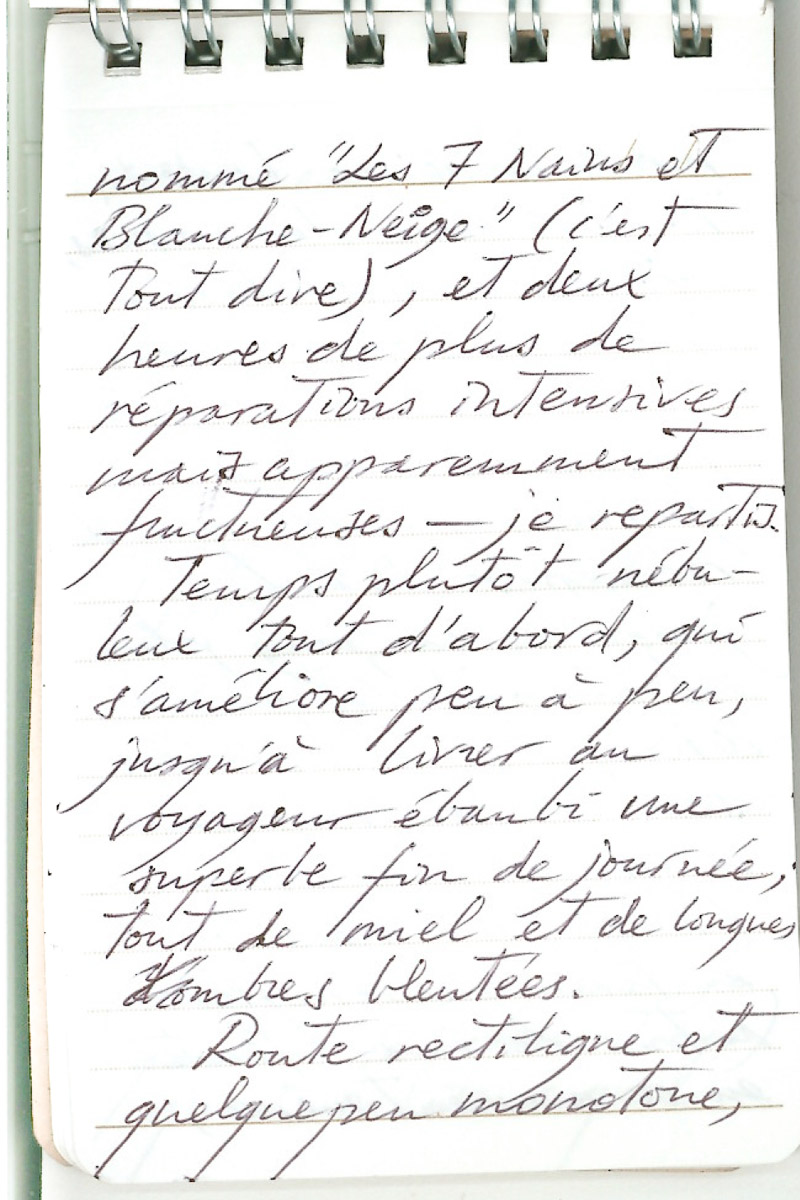 nommé "Les 7 Nains et
Blanche-Neige" (c'est
tout dire), et deux
heures de plus de
réparations intensives
mais apparemment
fructueuses — je repartis.
Temps plutôt nébu-
leux tout d'abord, qui
s'améliore peu à peu,
jusqu'à livrer au
voyageur ébaubi une
superbe fin de journée,
tout de miel et de longues
ombres bleutées.
Route rectiligne et
quelque peu monotone,